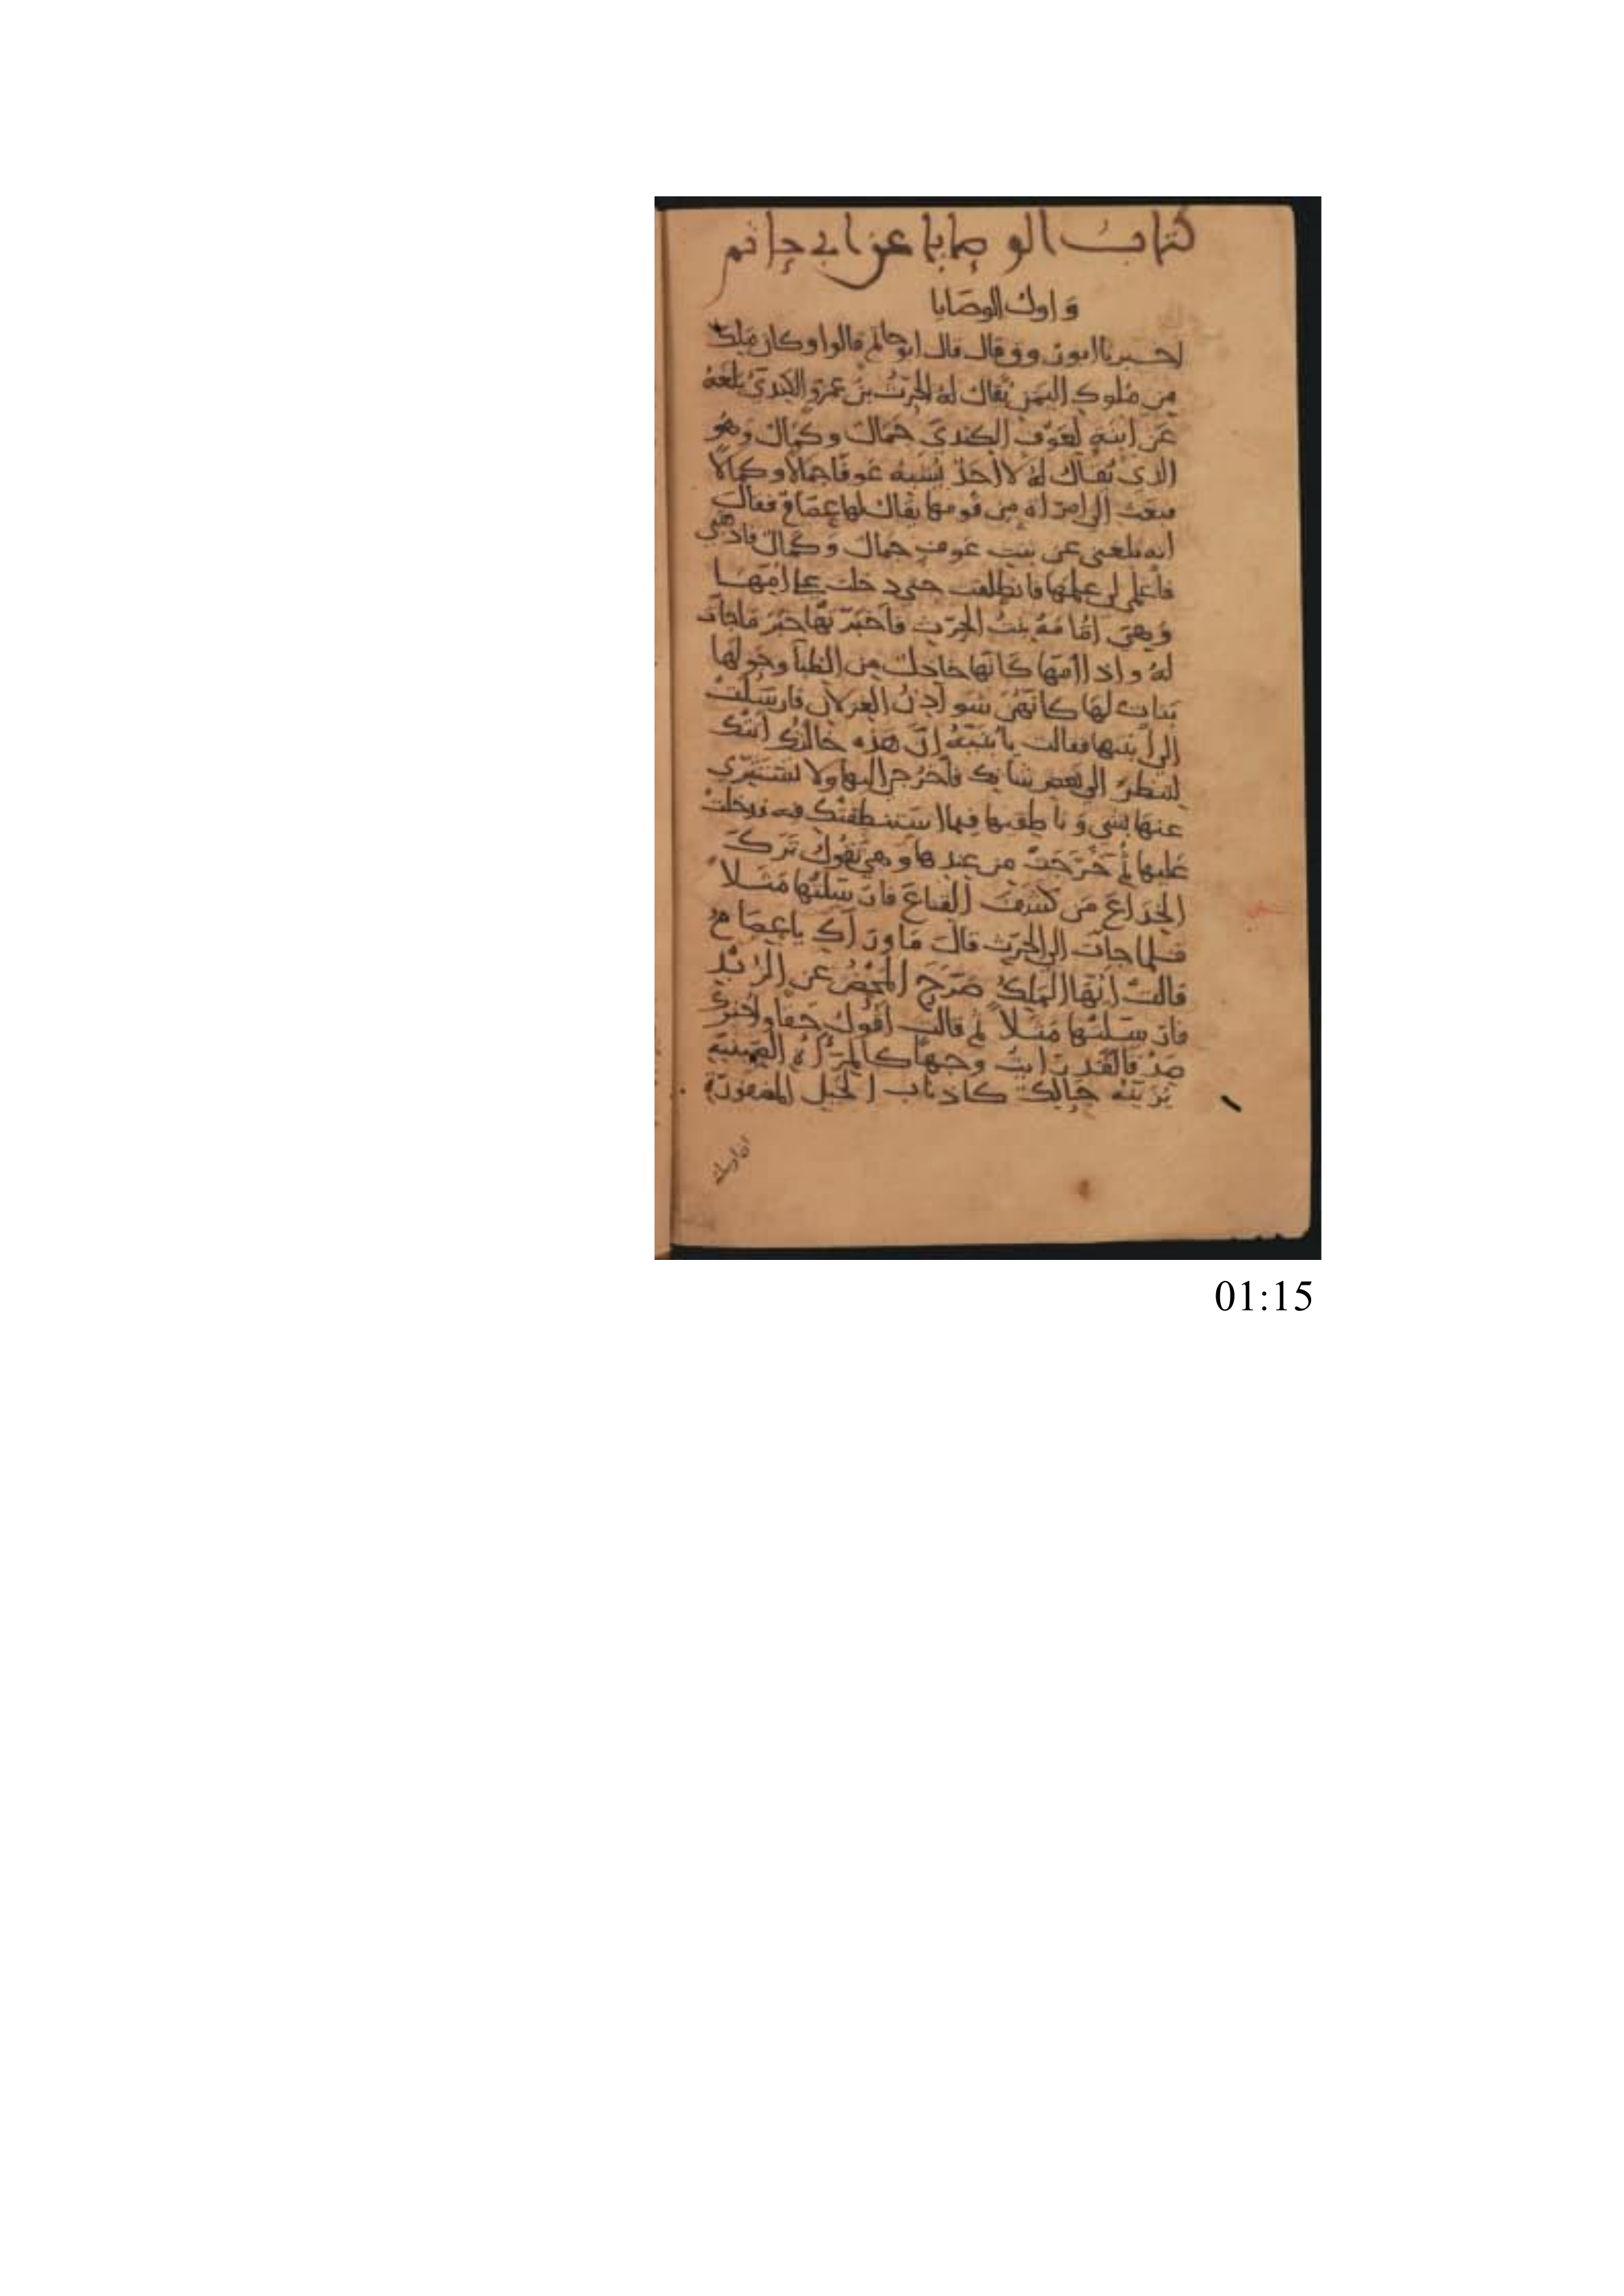 كتاب الوصايا عن ابي حاتم
وَاول الوصَايا
اخبرنا ابو روق قال قال ابو حاتم قالوا وكان مَلِك
مِن مُلوكِ اليَمَنِ يُقالُ لهُ الحرثُ بنُ عمرٍو الكِنديّ بَلغَهُ
عَن ابنةٍ لعَوْفٍ الكِنديّ جَمالٌ وكمَالٌ وَهُو
الذي يُقالُ لهُ لا احَدَ يُشبِه عَوفًا جَمالًا وكمالًا
فبعَث الى امرَاةٍ مِن قومها يقال لها عِصَامُ فقال
انه بلغني عن بنتِ عَوفٍ جمالٌ وَكمالٌ فاذهبي
فاعلمي لي علمها فانطلقت حتى دخلت على امّهَا
وَهيَ امَامَةُ بنتُ الحرث فاخبَرَتها خَبَرَ ما جات
لهُ واذا امّها كَانّها خاذلٌ مِن الظبا وحَولها
بَناتٌ لهَا كانّهُنّ شَوادِنُ الغِزلانِ فارسَلتْ
الى ابنتها فقالت يا بُنيّةُ اِنّ هَذِه خالتُكِ اَتتكِ
لتنظرَ الى بَعضِ شانِكِ فاخرُجي اليها ولا تَستَتِري
عنهَا بشيٍ وَناطِقيها فيما استنطَقتكِ فيه فدخلتْ
عَليها ثم خَرَجَتْ من عندِها وهي تقُولُ تَرَكَ
الخِدَاعَ مَن كشفَ القِناعَ فارسَلتْها مَثَلاً
فلما جات الى الحرث قالَ مَا وَراكِ يا عِصَامُ
قالتْ ايّها المَلِكُ صَرّحَ المَحْضُ عنِ الزُبْدِ
فارسَلتْها مَثَلاً ثم قالت اقولُ حَقًا واُخبِرُكَ
صِدْقًا لقد رايتُ وجهًا كالمِرْاةِ الصّينيّةِ
يُزَيّنُه حَالِكٌ كاذنابِ الخَيلِ المضفورَةِ
ان ارسلته
01:15